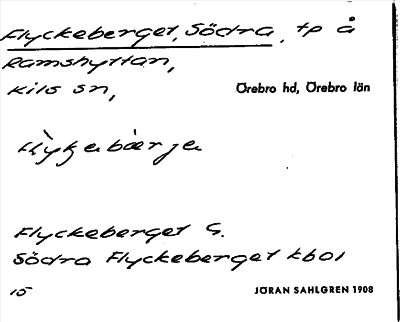 Flyckeberget, Södra, tp å
Ramshyttan,
Kils sn, Örebro hd, Örebro län
Flyckeberget S.
Södra Flyckeberget kbol
15 JÖRAN SAHLGREN 1908